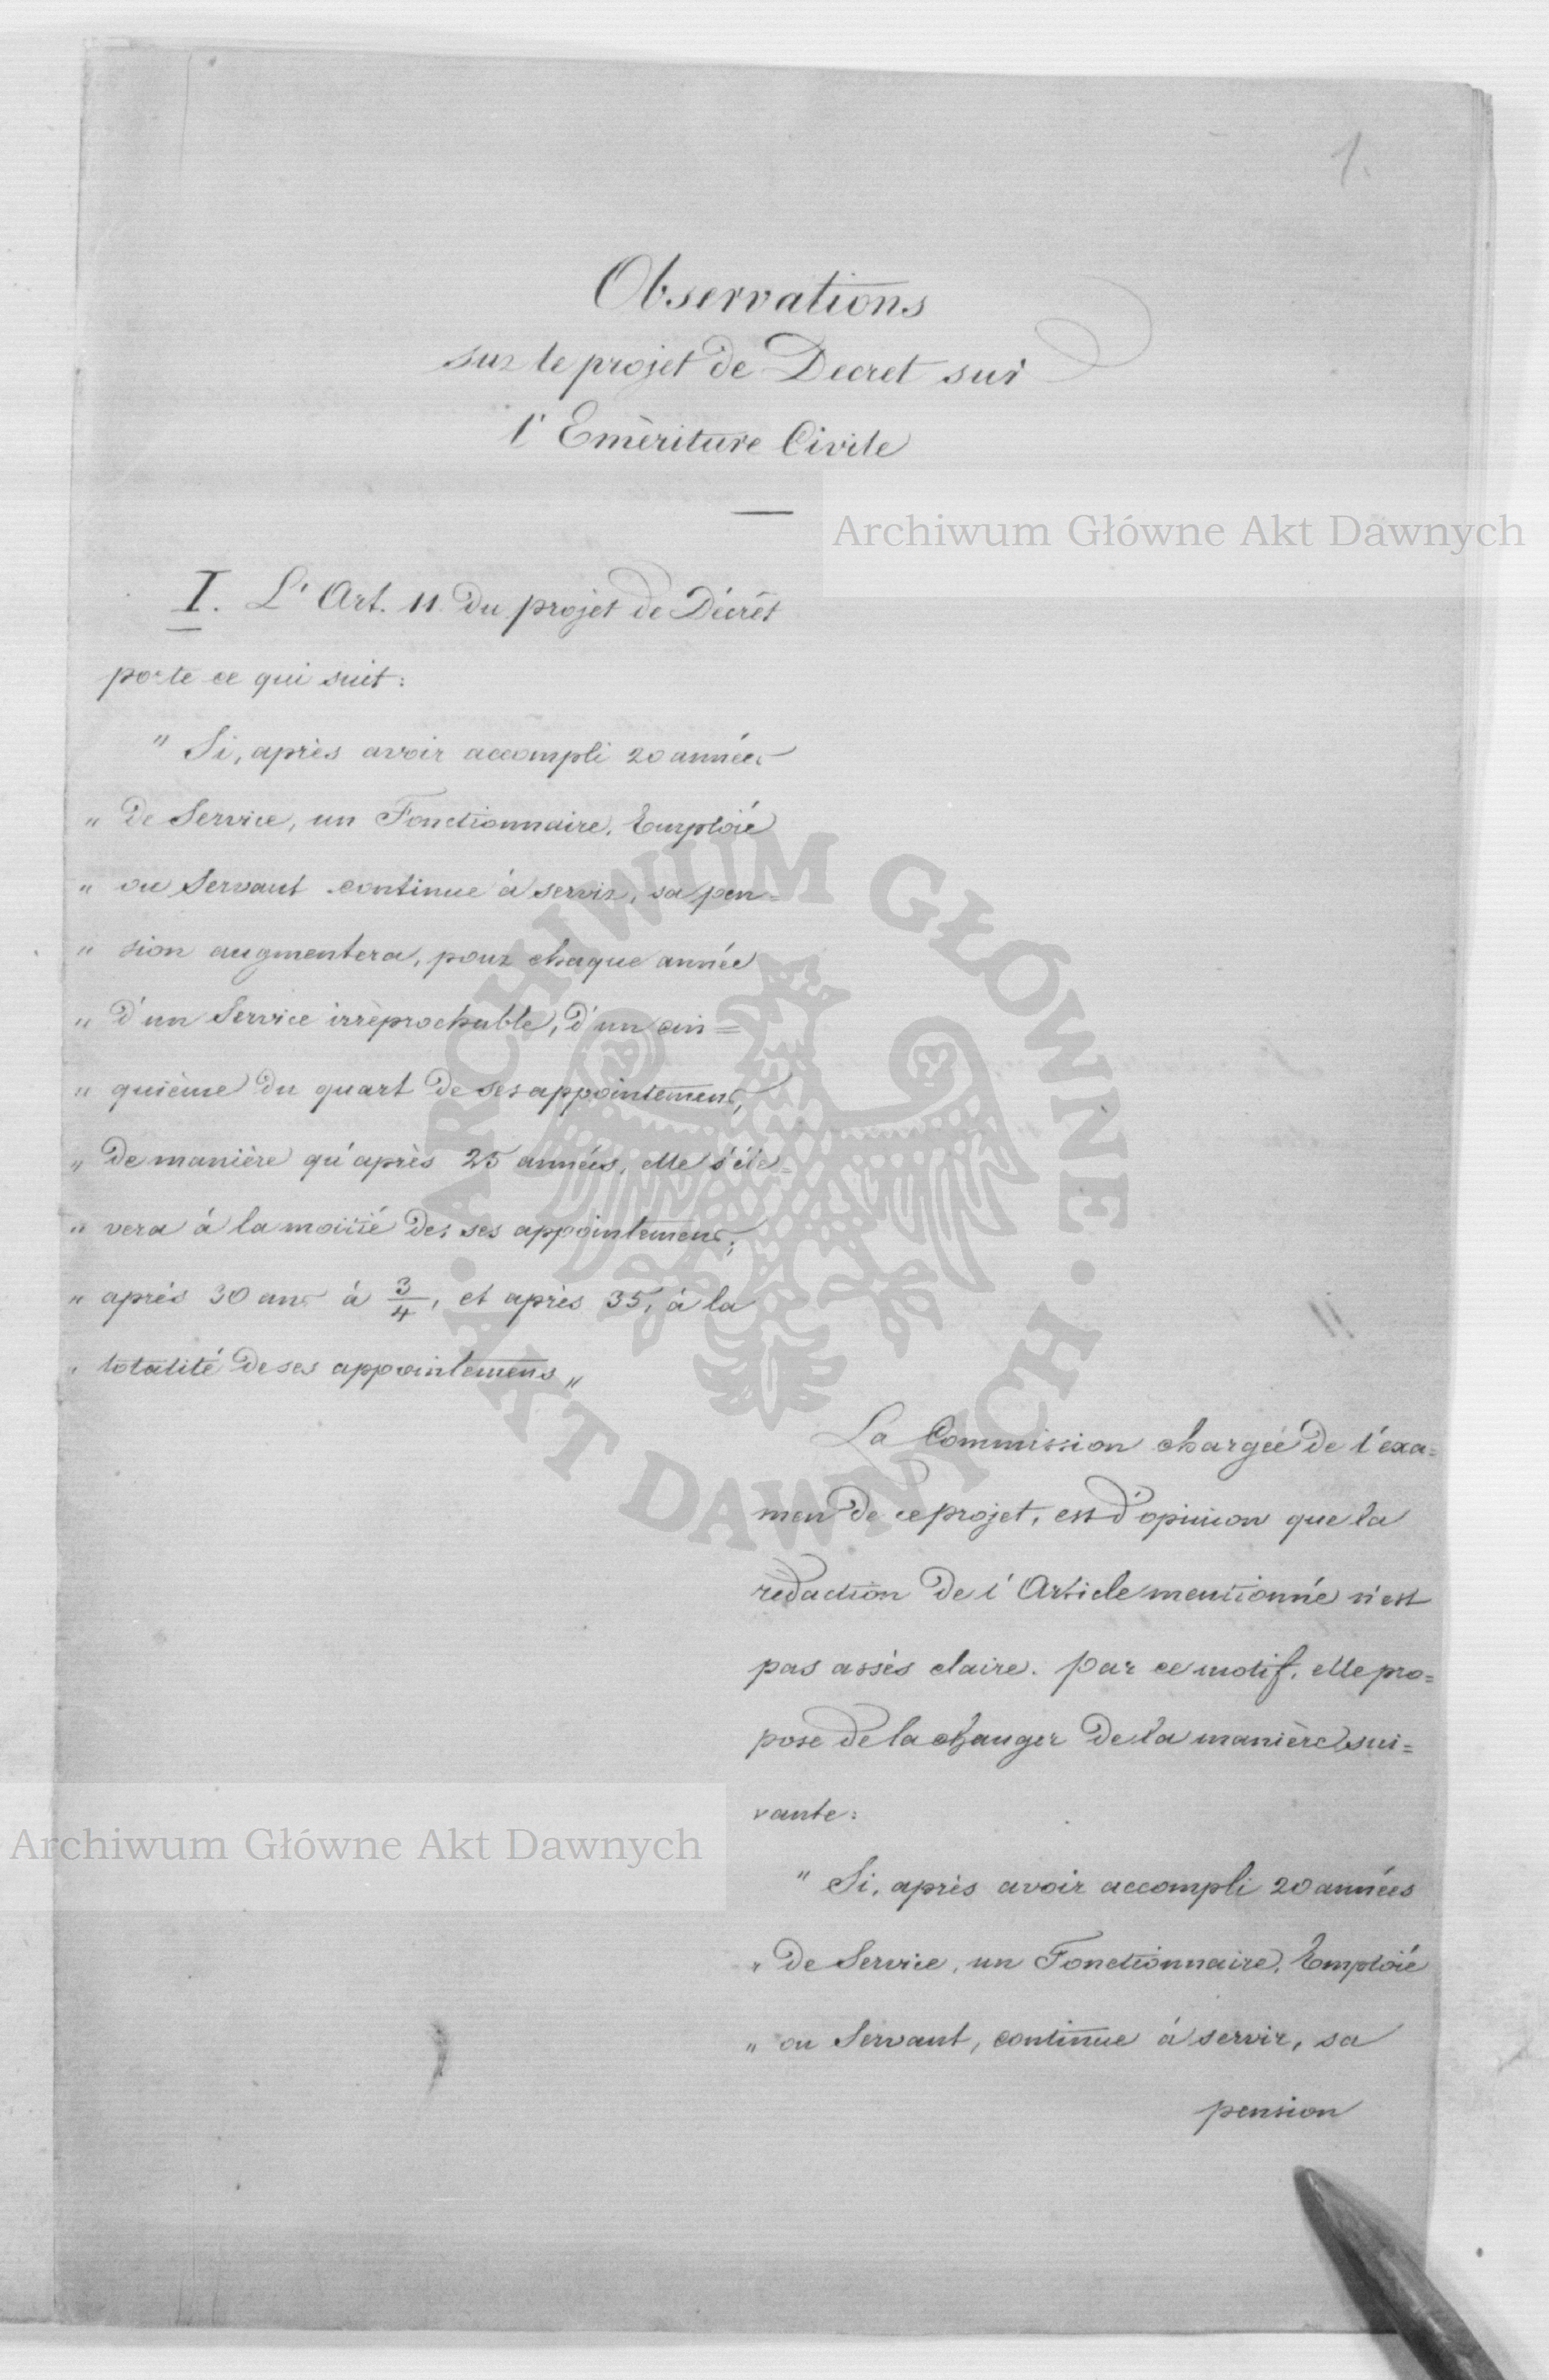 1.
Observations
sur le projet de Decret sur
l'Emèriture Civile
Archiwum Główne Akt Dawnych
I. L'Art. 11 du projet de Décrèt
porte ce qui suit:
" Si, après avoir accompli 20 années
" de Service, un Fonctionnaire, Emploié
" ou Servant continue à servir, sa pen=
" sion augmentera, pour chaque année
" d'un Service irrèprochable, d'un cin=
" quième du quart de ses appointemens,
" de manière qu'après 25 années, elle s'éle=
" vera à la moitié des ses appointemens,
" après 30 ans à 3/4, et après 35, à la
" totalité de ses appointemens "
ARCHIWUM GŁÓWNE · AKT DAWNYCH ·
La Commission chargée de l'exa=
men de ce projet, est d'opinion que la
redaction de l'Article mentionné n'est
pas assès claire. Par ce motif, elle pro=
pose de la changer de la manière sui=
vante:
Archiwum Główne Akt Dawnych
" Si, après avoir accompli 20 années
" de Service, un Fonctionnaire, Emploié
" ou Servant, continue à servir, sa
pension